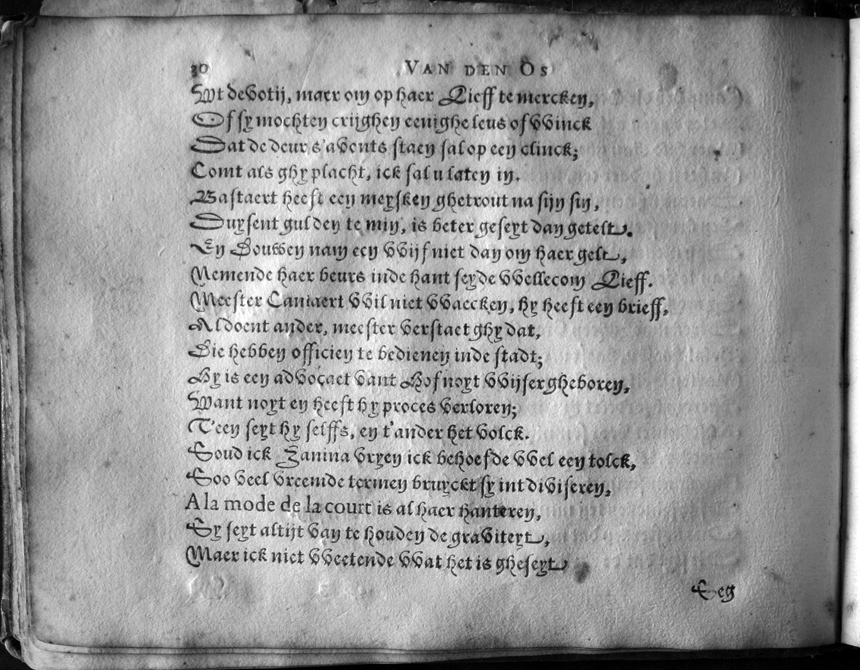 30 VAN DEN OS
Wt devotij, maer om op haer Lieff te mercken,
Of sy mochten crijghen eenighe leus of VVinck
Dat de deur s'avonts staen sal op een clinck;
Comt als ghy placht, ick sal u laten in.
Bastaert heeft een meysken ghetrout na sijn sin,
Duysent gulden te min, is beter geseyt dan getelt.
En Bouwen nam een VVijf niet dan om haer gelt,
Nemende haer beurs inde hant seyde VVellecom Lieff.
Meester Canivert VVil niet VVaecken, hy heeft een brieff,
Al doent ander, meester verstaet ghy dat,
Die hebben officien te bedienen inde stadt;
Hy is een advoçaet vant Hof noyt VVijser gheboren,
Want noyt en heeft hy proces verloren;
T'een seyt hy selffs, en t'ander het volck.
Soud ick Ianina vryen ick behoefde VVel een tolck,
Soo veel vreemde termen bruyckt sy int diviseren,
A la mode de la court is al haer hanteren,
Sy seyt altijt van te houden de graviteyt,
Maer ick niet VVeetende VVat het is gheseyt
Seg